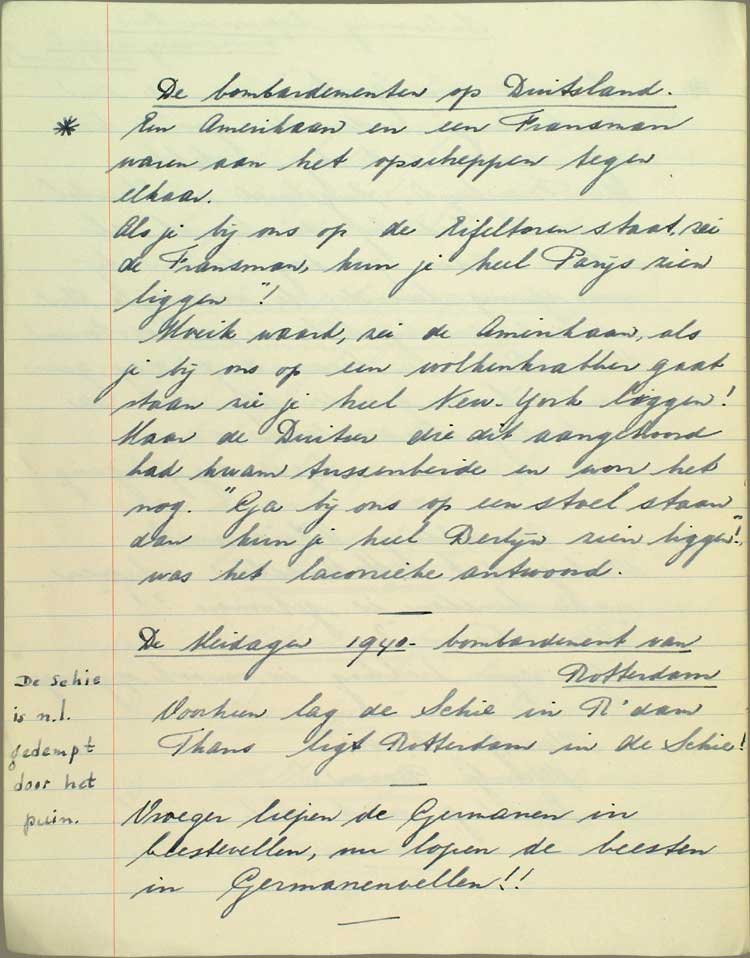 De bombardementen op Duitsland.
* Een Amerikaan en een Fransman
waren aan het opscheppen tegen
elkaar.
Als je bij ons op de Eifeltoren staat, zei
de Fransman, kun je heel Parijs zien
liggen"!
waard, zei de Amerikaan, als
je bij ons op een wolkenkrabber gaat
staan zie je heel New-York liggen!
Maar de Duitser die dit aangehoord
had kwam tussenbeide en won het
nog. "Ga bij ons op een stoel staan
dan kun je heel Berlijn zien liggen"!,
was het laconieke antwoord.
De Meidagen 1940 - bombardement van
Rotterdam
Voorheen lag de Schie in R'dam
Thans ligt Rotterdam in de Schie!
De Schie
is n.l.
gedempt
door het
puin.
Vroeger liepen de Germanen in
beestevellen, nu lopen de beesten
in Germanenvellen!!